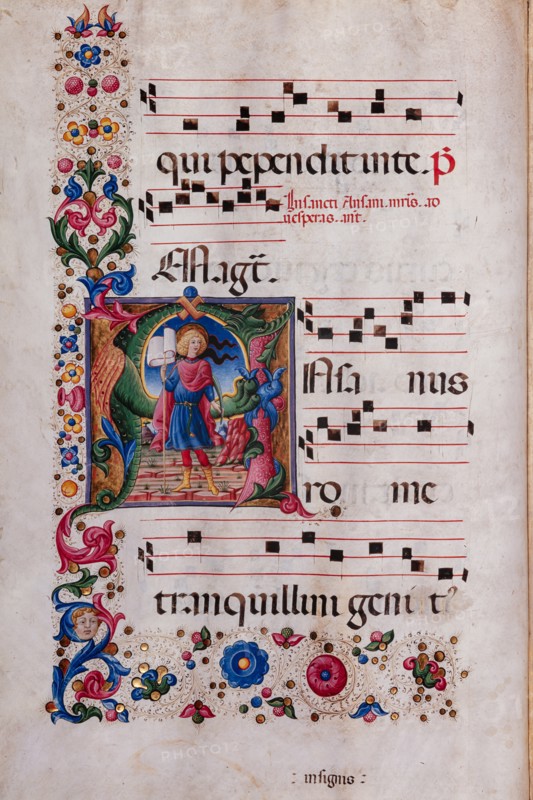 qui pependit in te. p̃
In sancti Ansani. mr̃is. ro
uesperas. ant.
Magt̃.
Ansa nus
ro me
tranquillini geni t⁹
: insignis :
PHOTO12